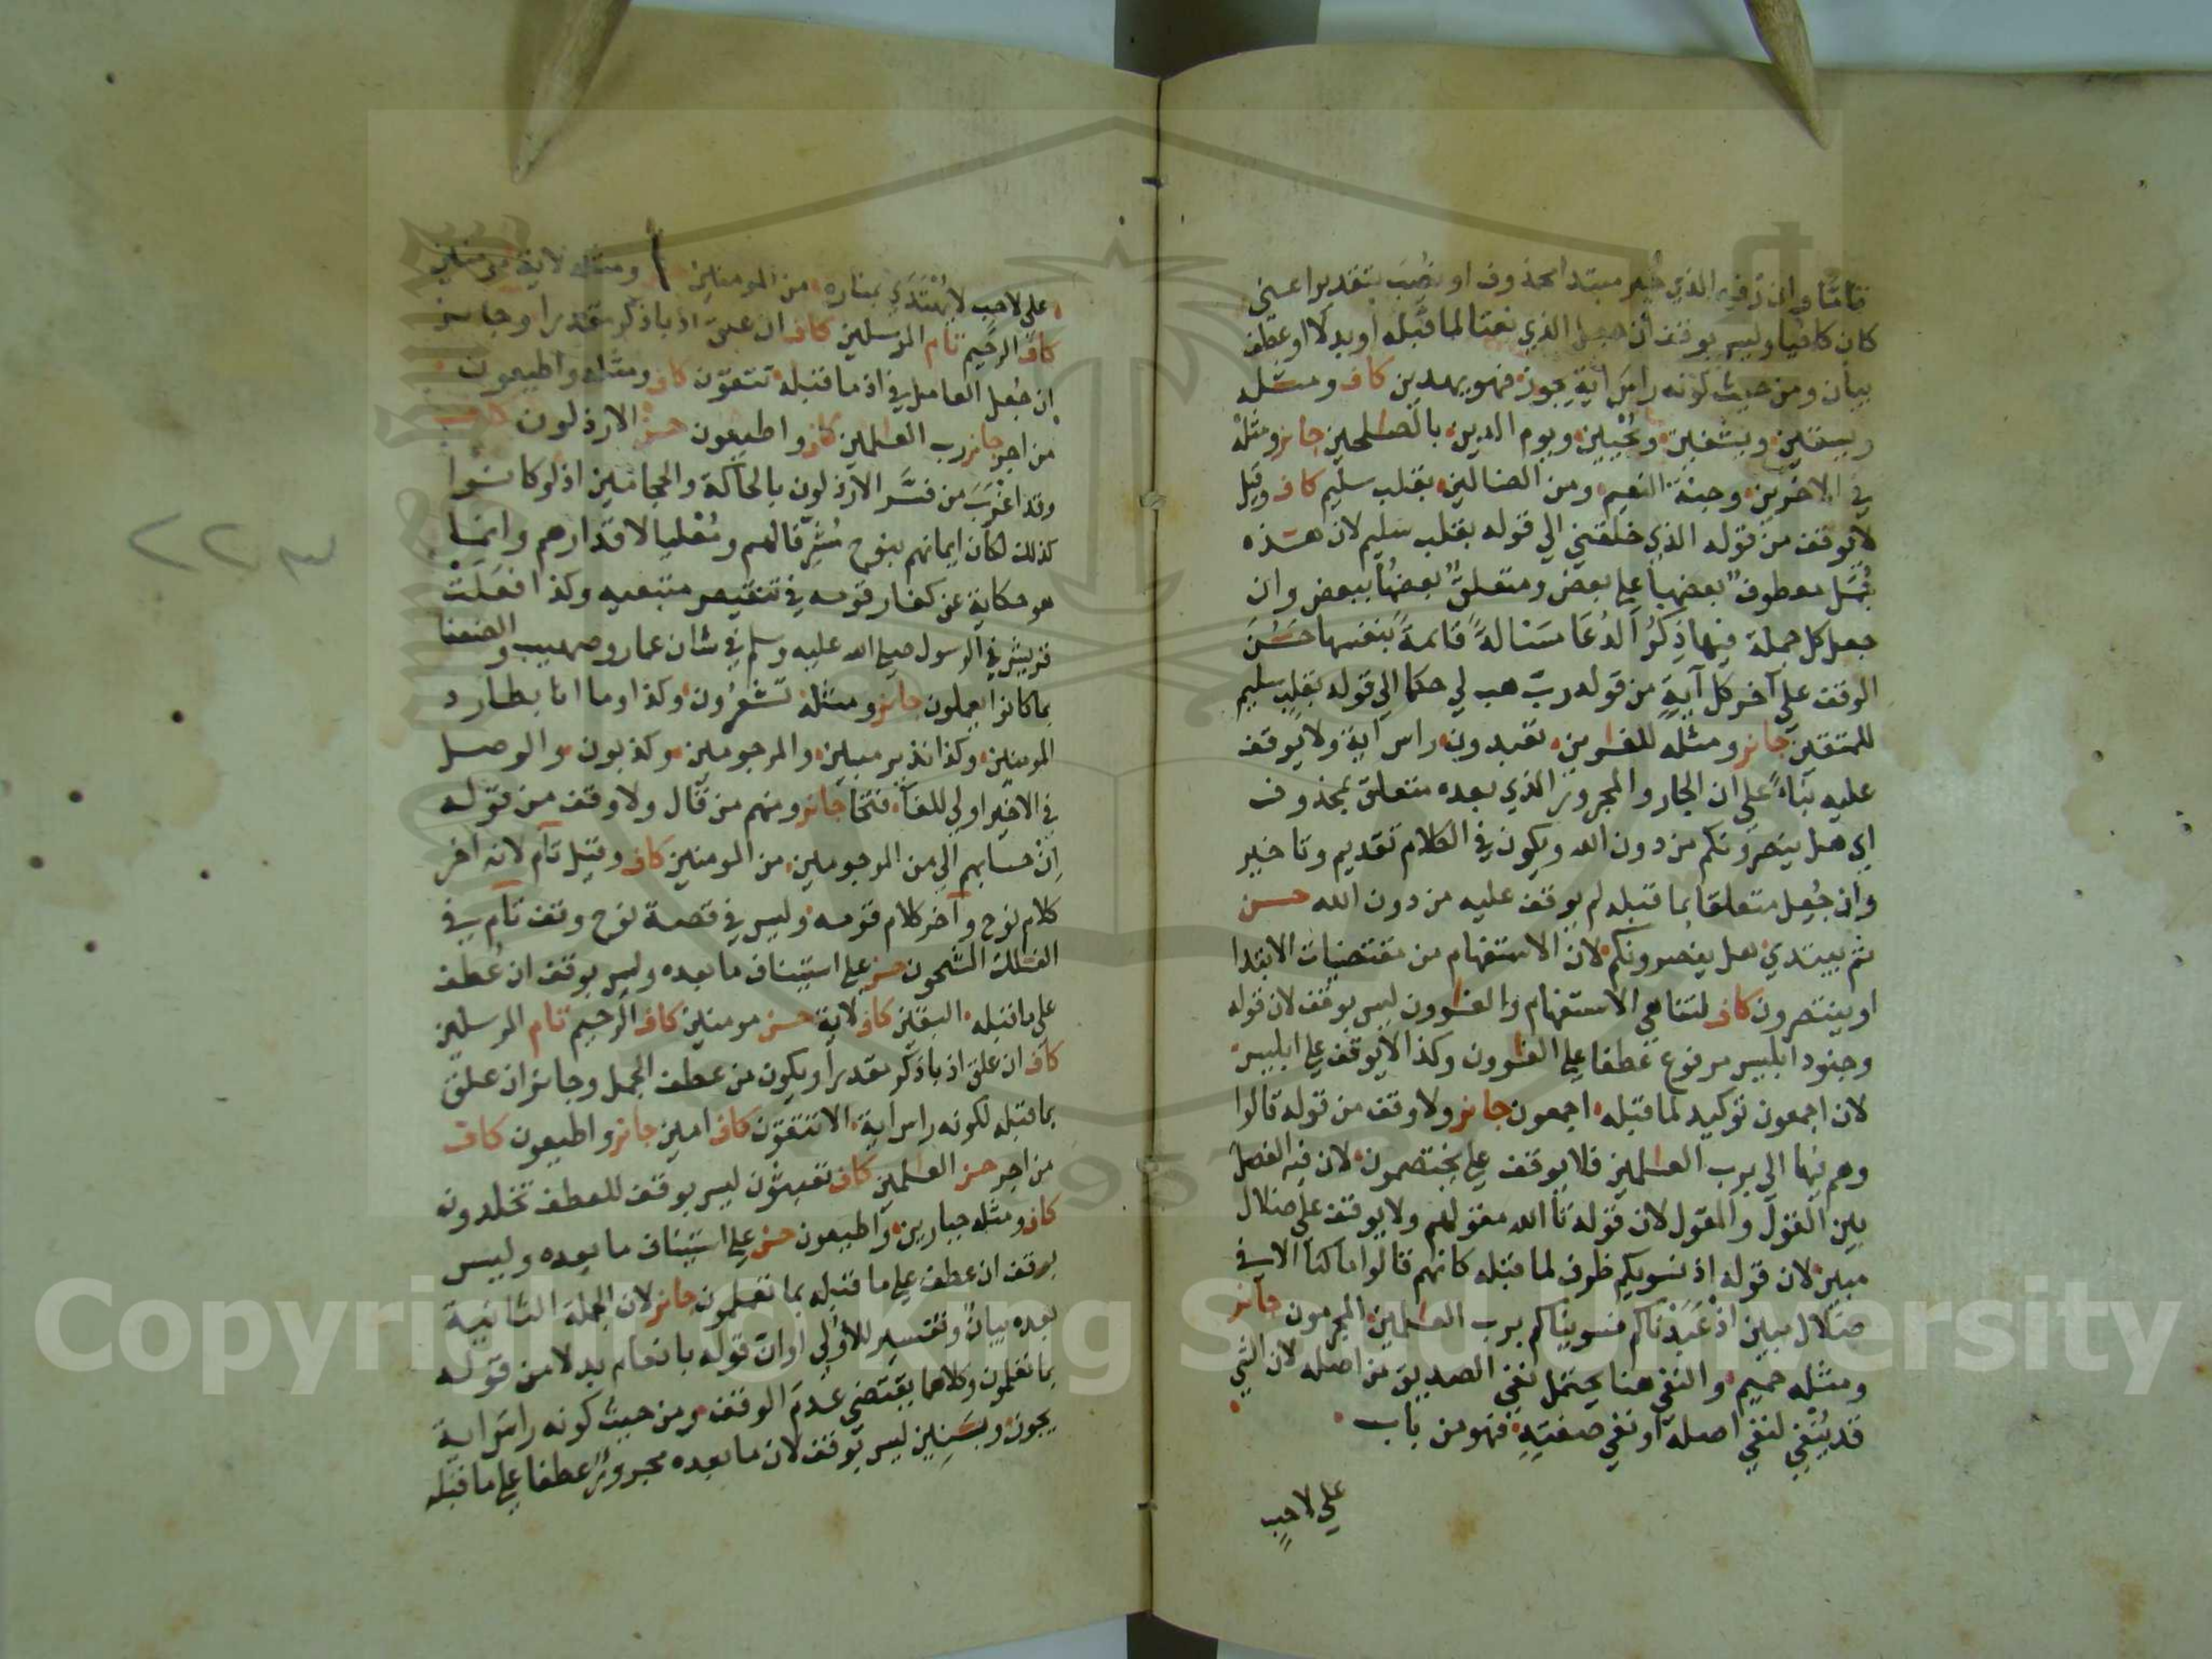 تاما وان رفع الذي خبر مبتدا محذوف او نصب بتقدير اعني
كان كافيا وليس بوقف ان جعل الذي نعتا لما قبله او بدلا او عطف
بيان ومن حيث كونه راس اية يجوز فهو يهدين كاف ومثله
ويسقين ويشفين ويحيين ويوم الدين بالصلحين جائز ومثله
في الاخرين وجنة النعيم ومن الضالين بقلب سليم كاف وقيل
لا يوقف من قوله الذي خلقني الي قوله بقلب سليم لان هذه
جمل معطوف بعضها علي بعض ومتعلق بعضها ببعض وان
جعل كل جملة فيها ذكر الدعا مسالة قايمة بنفسها حسن
الوقف علي آخر كل آية من قوله رب هب لي حكما الي قوله بقلب سليم
للمتقين جائز ومثله للغوين تعبدون راس آية ولا يوقف
عليه بناء علي ان الجار والمجرور الذي بعده متعلق بمحذوف
اي هل ينصرونكم من دون الله ويكون في الكلام تقديم وتاخير
وان جعل متعلقا بما قبله لم يوقف عليه من دون الله حسن
ثم يبتدي هل ينصرونكم لان الاستفهام من مقتضيات الابتدا
او ينتصرون كاف لتناهي الاستفهام والغوون ليس بوقف لان قوله
وجنود ابليس مرفوع عطفا علي الغوون وكذا لا يوقف علي ابليس
لان اجمعون توكيد لما قبله اجمعون جائز ولا وقف من قوله قالوا
وهم فيها الي برب العلمين فلا يوقف علي يختصمون لان فيه الفصل
بين القول والمقول لان قوله تالله مقولهم ولا يوقف علي ضلال
مبين لان قوله اذ نسويكم ظرف لما قبله كانهم قالوا ما كنا الا في
ضلال مبين اذ عبدناكم فسويناكم برب العلمين المجرمون جائز
ومثله حميم والنفي هنا يحتمل نفي الصديق من اصله لان الشي
قد ينفي لنفي اصله او نفي صفته فهو من باب
علي لاحب
علي لاحب لا يهتدي بمناره من المومنين ومثله لاية مومنين
كاف الرحيم تام المرسلين كاف ان علق اذ باذكر مقدرا وجائز
ان جعل العامل في اذ ما قبله تتقون كاف ومثله واطيعون
من اجر جائز رب العلمين كاف واطيعون حسن الارذلون
وقد اغرب من فسر الارذلون بالحاكة والحجامين اذ لو كانوا
كذلك لكان ايمانهم بنوح مشرفا لهم ومعليا لاقدارهم وانما
هو حكاية عن كفار قومه في تنقيص متبعيه وكذا فعلت
قريش في الرسول صلي الله عليه وسلم في شان عمار وصهيب والضعفا
بما كانوا يعملون جائز ومثله تشعرون وكذا وما انا بطارد
المومنين وكذا نذير مبين والمرجومين وكذبون والوصل
في الاخير اولي للفاء فتحا جائز ومنهم من قال ولا وقف من قوله
ان حسابهم الي من المرجومين من المومنين كاف وقيل تام لانه اخر
كلام نوح وآخر كلام قومه وليس في قصة نوح وقف تام في
الفلك المشحون حسن علي استيناف ما بعده وليس بوقف ان عطف
علي ما قبله البقين كاف لاية حسن مومنين كاف الرحيم تام المرسلين
كاف ان علق اذ باذكر مقدرا ويكون من عطف الجمل وجائز ان علق
بما قبله لكونه راس اية الا تتقون كاف امين جائز واطيعون كاف
من اجر حسن العلمين كاف تعبثون ليس بوقف للعطف تخلدون
كاف ومثله جبارين واطيعون حسن علي استيناف ما بعده وليس
بوقف ان عطف علي ما قبله بما تعملون جائز لان الجملة الثانية
بعده بيان وتفسير للاولي او ان قوله بانعام بدلا من قوله
بما تعلمون وكلاهما يقتضي عدم الوقف ومن حيث كونه راس اية
يجوز وبنين ليس بوقف لان ما بعده مجرور عطفا علي ما قبله
٢٢٣
Copyright © King Saud University
1957